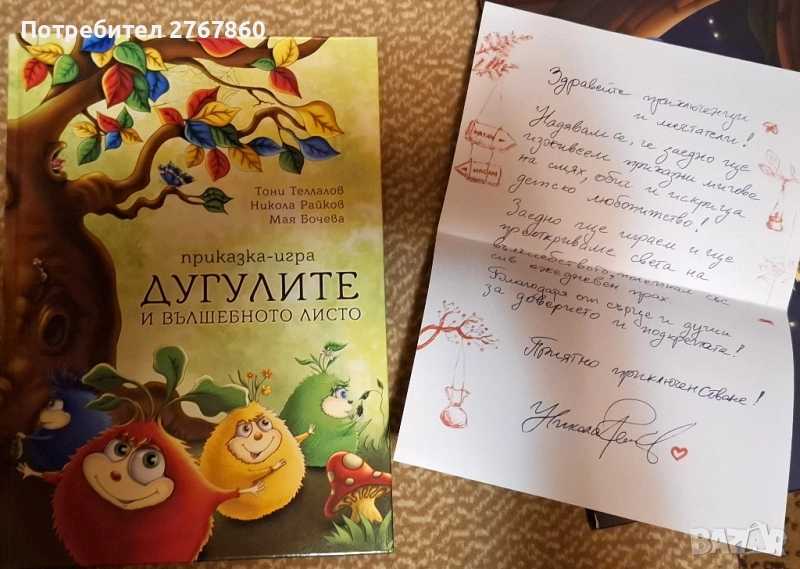 Потребител 2767860
Тони Теллалов
Никола Райков
Мая Бочева
приказка-игра
ДУГУЛИТЕ
И ВЪЛШЕБНОТО ЛИСТО
Здравейте приключенци
и мечтатели!
Надявам се, че заедно ще
изживеем приказни мигове
на смях, обич и искряща
детско любопитство!
Заедно ще играем и ще
преоткриваме света на
вълшебството, полепнал със
сив ежедневен прах.
Благодаря от сърце и душа
за доверието и подкрепата!
Приятно приключенстване!
Никола
НАТАМ
НАСАМ
BAZAR